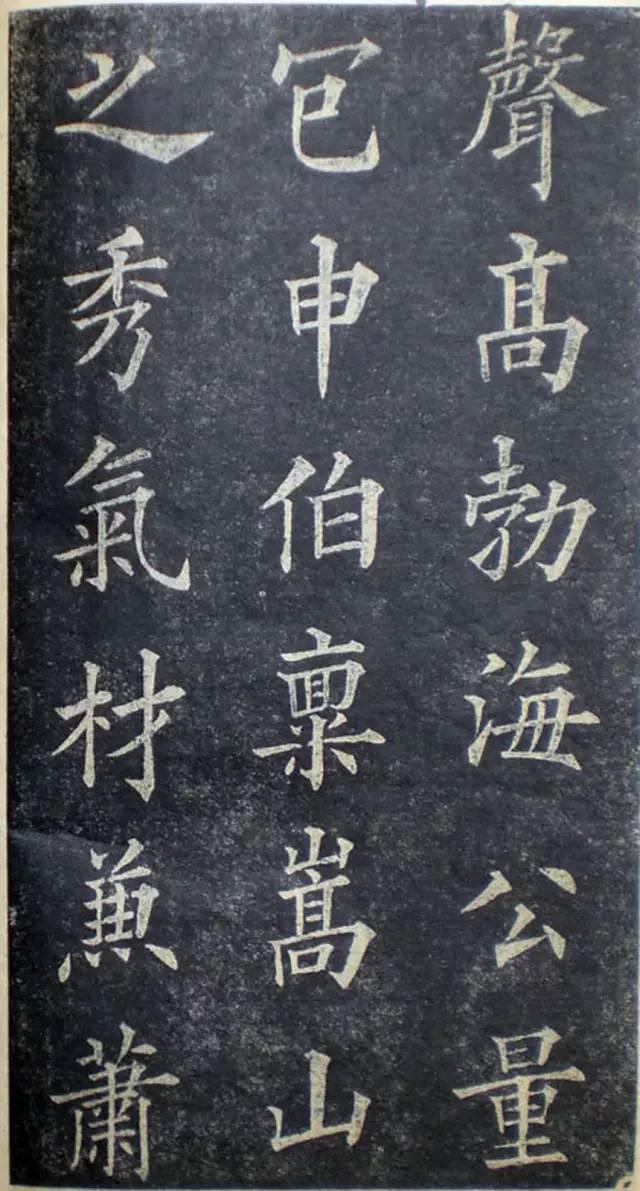 聲髙勃海公量
包申伯禀嵩山
之秀氣材兼蕭